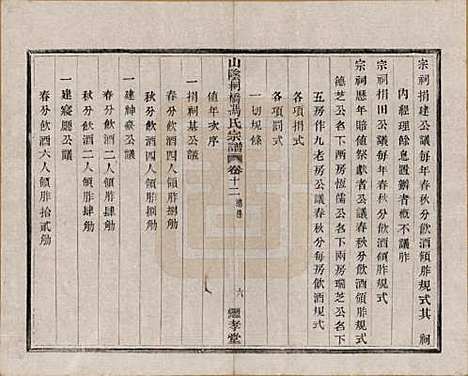 宗祠捐建公議每年春秋分飲酒領胙規式其祠
內經理餘息置辦者概不議胙
宗祠捐田公議每年春秋分飲酒領胙規式
宗祠歷年賠值祭獻者公議春秋分飲酒領胙規式
德芝公名下兩房恆儒公名下兩房瑞芝公名下
五房作九老房公議春秋分每房飲酒規式
各項捐式
各項罰式
一切規條
山陰柯橋馮氏宗譜
卷十二
六
繼孝堂
值年次序
一捐祠基公議
春分飲酒四人領胙捌觔
秋分飲酒四人領胙捌觔
一建神龕公議
春分飲酒二人領胙肆觔
秋分飲酒二人領胙肆觔
一建寢廳公議
春分飲酒六人領胙拾貳觔